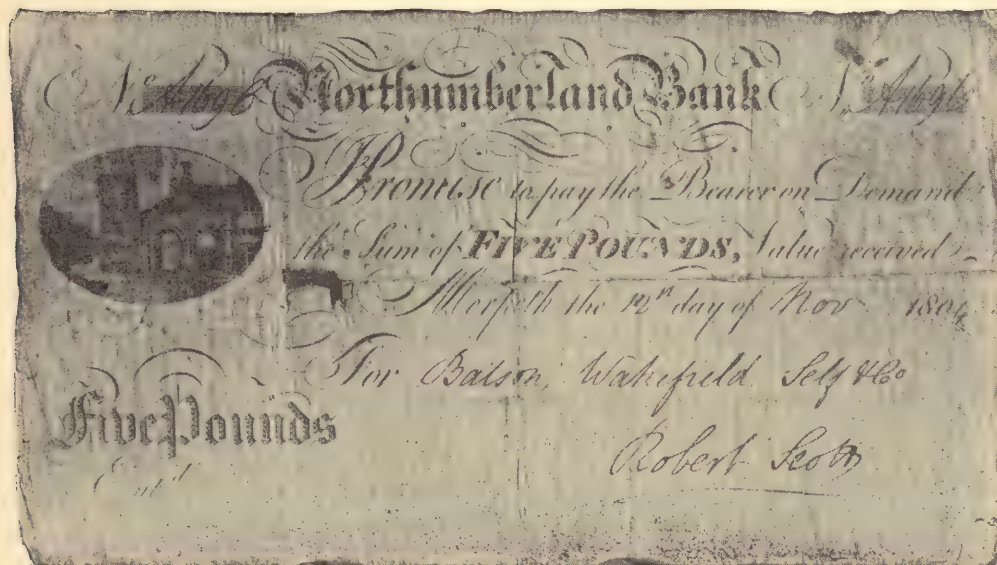 No A1696 Northumberland Bank No A1696
I Promise to pay the Bearer on Demand
the Sum of FIVE POUNDS, Value received
Morpeth the 12th day of Nov 1804
For Batson, Wakefield Self & Co
Five Pounds
Robert Scott
Entd